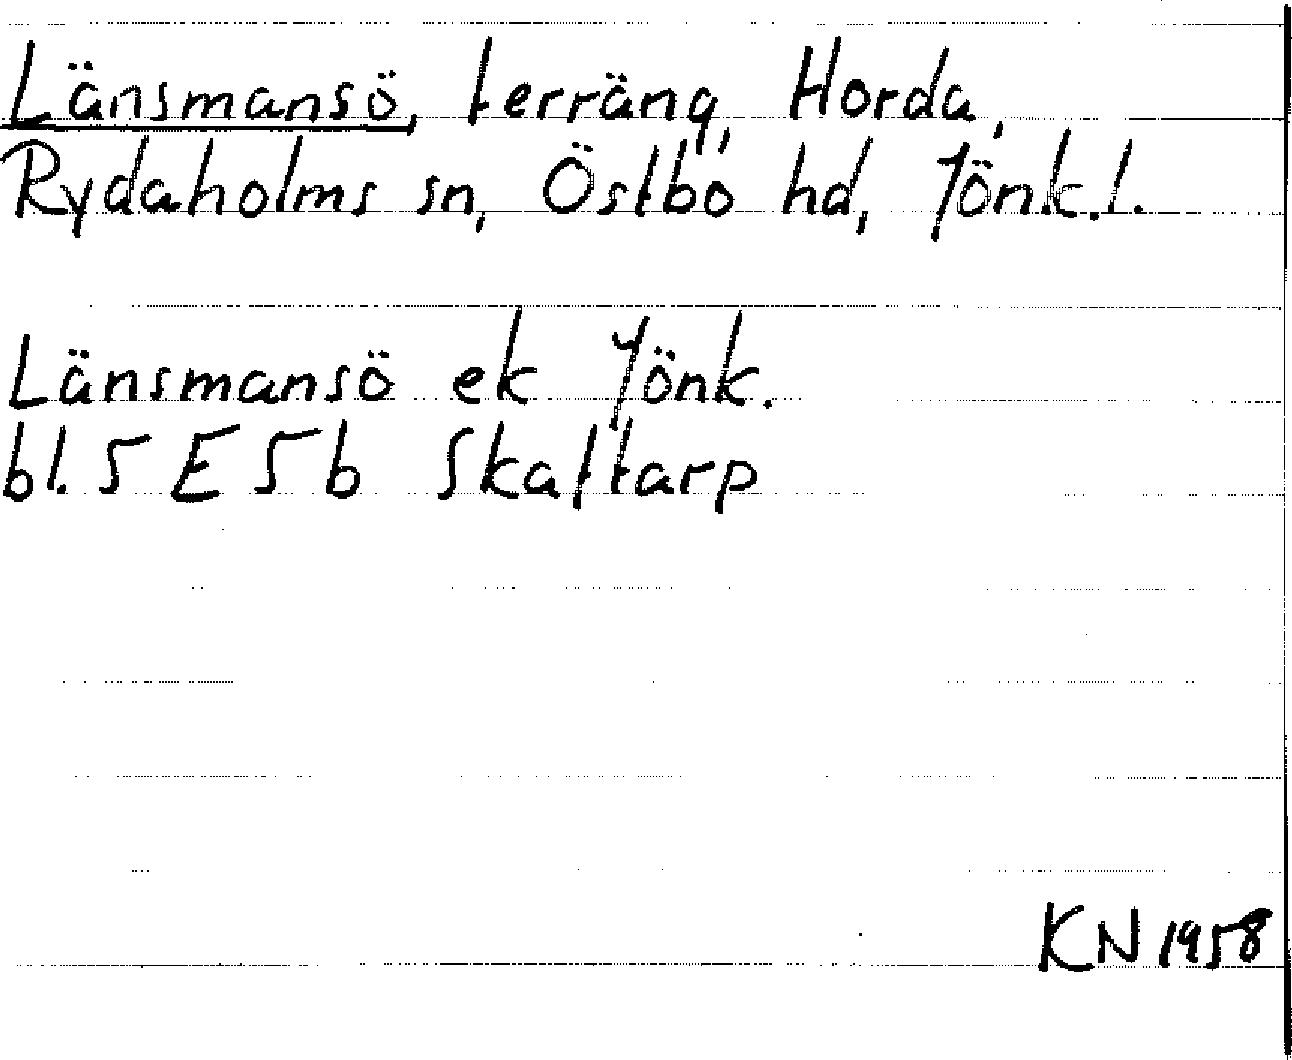 Länsmansö, terräng, Horda,
Rydaholms sn, Östbo hd, Jönk.l.
Länsmansö ek Jönk.
bl. 5 E 5 b Skaftarp
KN 1958